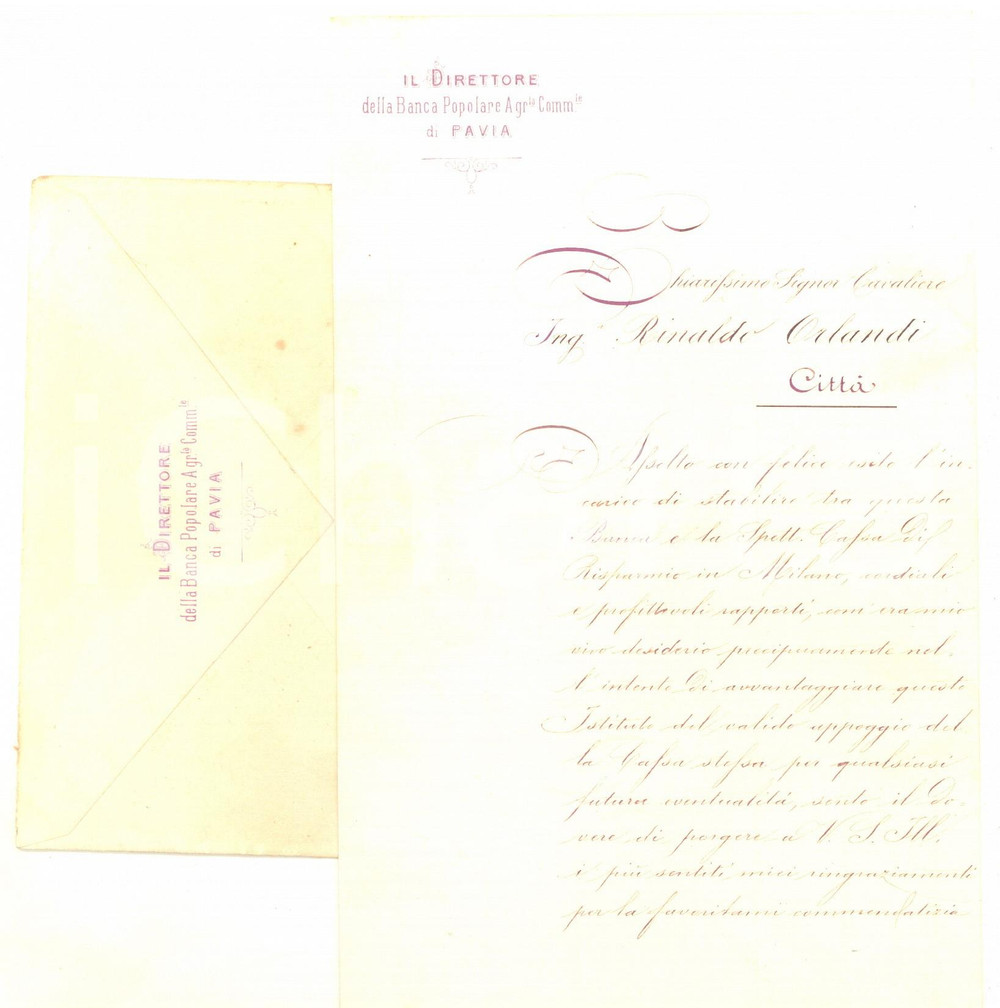 IL DIRETTORE
della Banca Popolare Agr.la Comm.le
di PAVIA
Chiarissimo Signor Cavaliere
Ing. Rinaldo Orlandi
Città
Assolto con felice esito l'in-
carico di stabilire tra questa
Banca e la Spett. Cassa di
Risparmio in Milano, cordiali
e profittevoli rapporti, com'era mio
vivo desiderio precipuamente nel-
l'intento di avvantaggiare questo
Istituto del valido appoggio del
la Cassa stessa per qualsiasi
futura eventualità, sento il do-
vere di porgere a V. S. Ill.
i più sentiti miei ringraziamenti
per la favoritami commendatizia
IL DIRETTORE
della Banca Popolare Agr.la Comm.le
di PAVIA